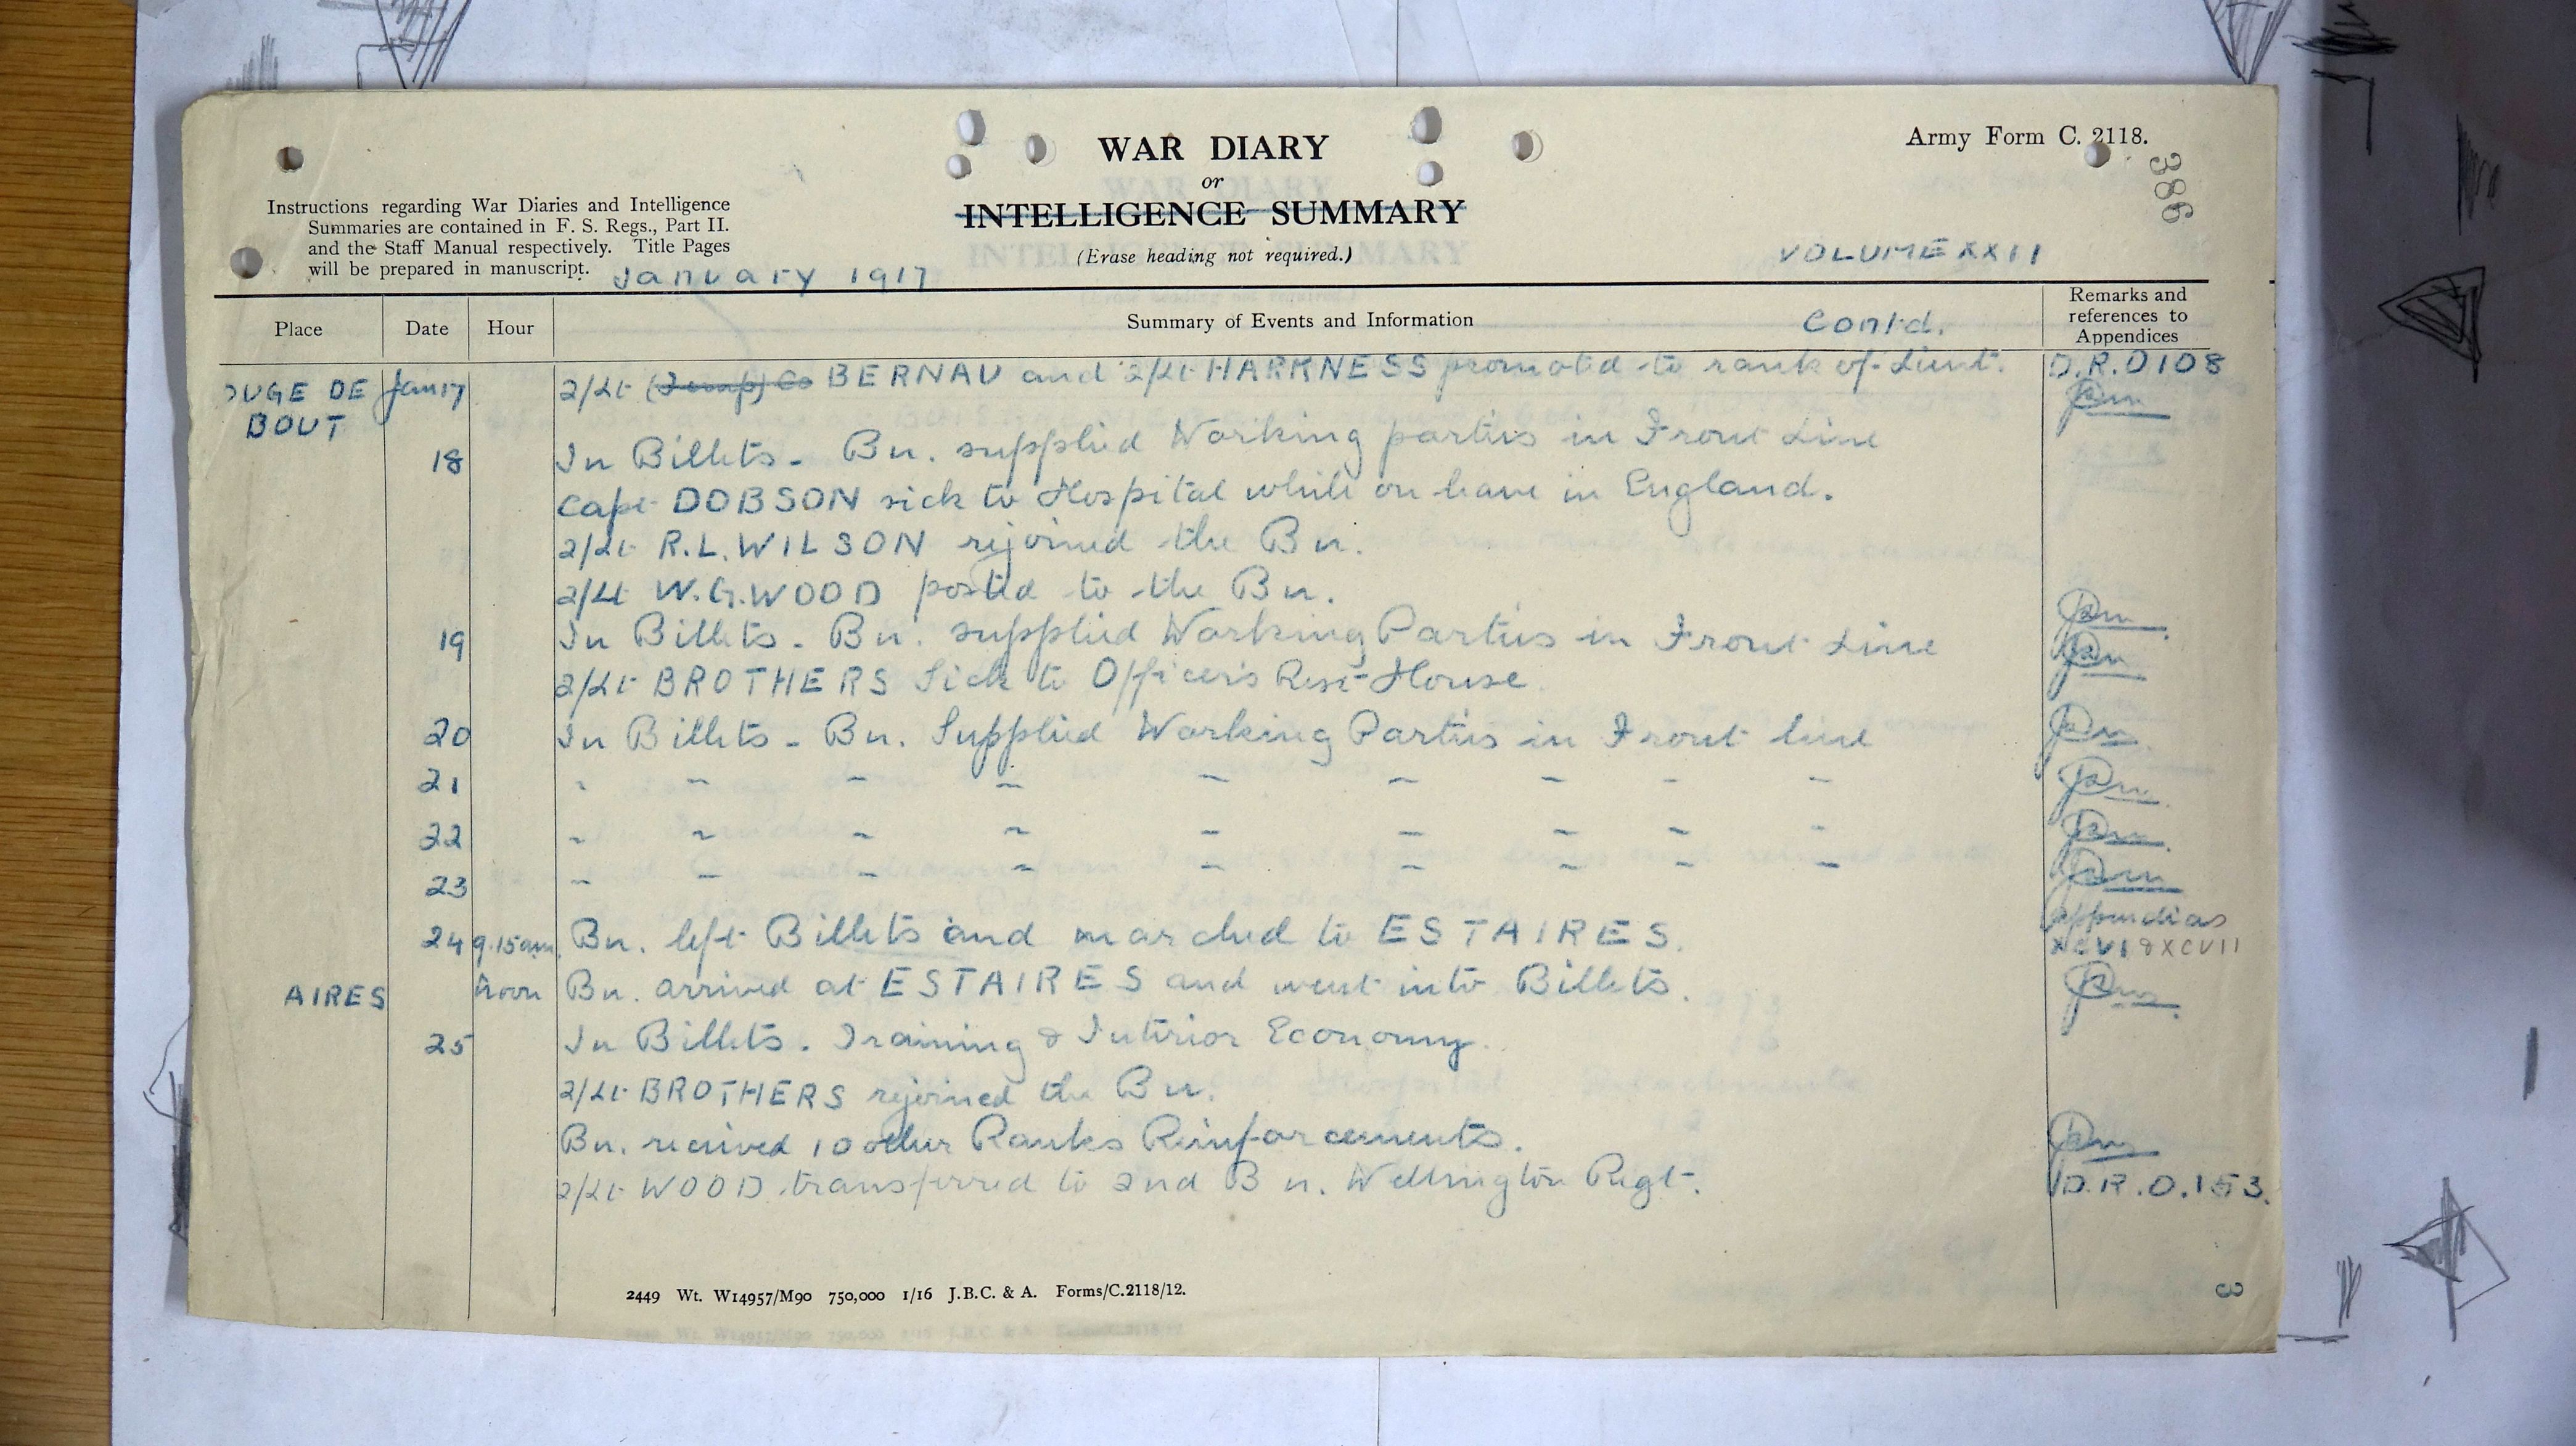 Army Form C. 2118.
386
WAR DIARY
or
INTELLIGENCE SUMMARY
(Erase heading not required.)
Instructions regarding War Diaries and Intelligence
Summaries are contained in F. S. Regs., Part II.
and the Staff Manual respectively. Title Pages
will be prepared in manuscript.
January 1917
VOLUME XXII
Place
Date
Hour
Summary of Events and Information
Contd.
Remarks and
references to
Appendices
OUGE DE
BOUT
Jan 17
2/Lt (Temp) BERNAU and 2/Lt HARKNESS promoted to rank of Lieut.
D.R.O 108
18
In Billets - Bn. supplied Working parties in Front Line
Capt DOBSON sick to Hospital while on leave in England.
2/Lt R.L. WILSON rejoined the Bn.
2/Lt W.G. WOOD posted to the Bn.
19
In Billets - Bn. supplied Working Parties in Front Line
2/Lt BROTHERS Sick to Officers Rest-House.
20
In Billets - Bn. Supplied Working Parties in Front line
21 " " " " " " " " "
22 " " " " " " " " "
23 " " " " " " " " "
24 9.15am. Bn. left Billets and marched to ESTAIRES.
Appendices
XCVI & XCVII
AIRES
Noon Bn. arrived at ESTAIRES and went into Billets.
25
In Billets. Training & Interior Economy.
2/Lt BROTHERS rejoined the Bn.
Bn. received 10 other Ranks Reinforcements.
2/Lt WOOD transferred to 2nd Bn. Wellington Regt.
D.R.O. 153.
2449 Wt. W14957/M90 750,000 1/16 J.B.C. & A. Forms/C.2118/12.
3